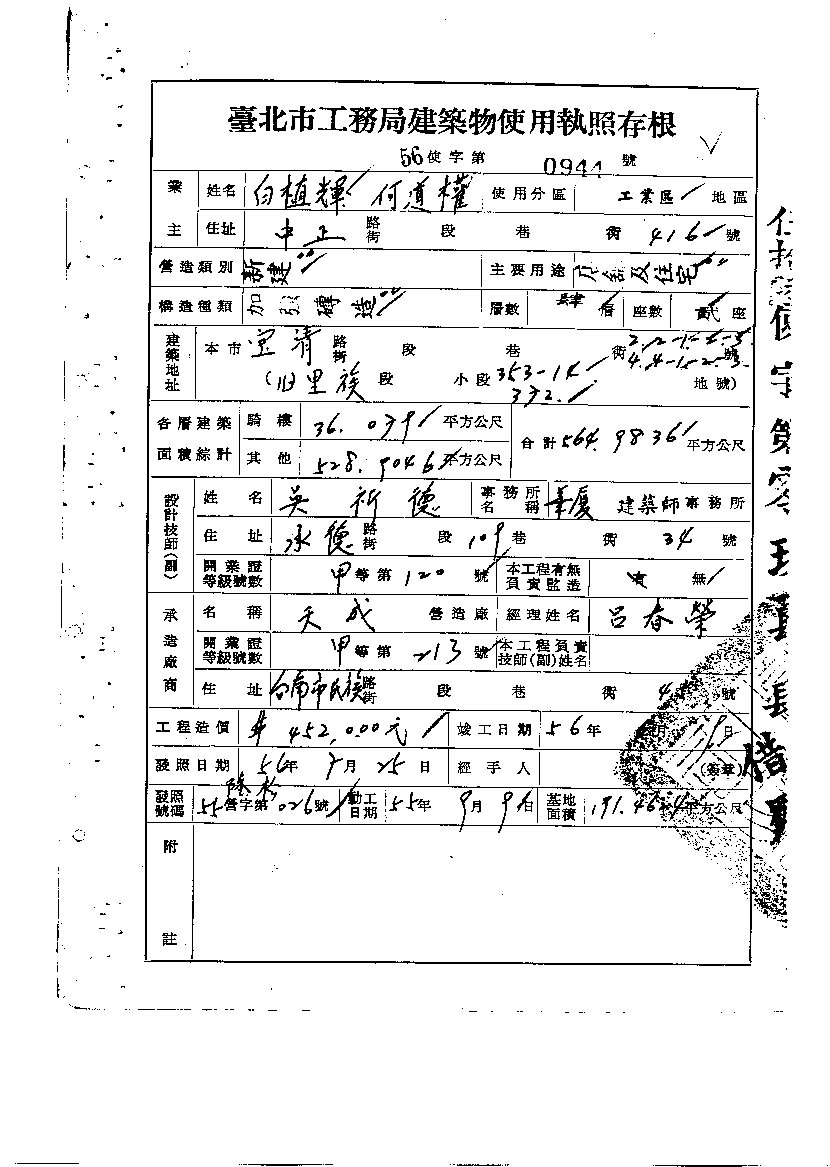 臺北市工務局建築物使用執照存根
56使字第 0944 號
業主 姓名 白植輝 何道權 使用分區 工業區 地區
住址 中正 路街 段 巷 衖 416 號
營造類別 新建 主要用途 店舖及住宅
構造種類 加強磚造 層數 肆 層 座數 貳 座
建築地址 本市 寶清 路街 段 巷 衖 號
(旧里族 段 小段 353-14 332. 地號)
各層建築面積綜計 騎樓 36.039 平方公尺 合計 564.9836 平方公尺
其他 528.9046 平方公尺
設計技師(副) 姓名 吳祈德 事務所名稱 華廈 建築師事務所
住址 承德 路街 段 109 巷 衖 34 號
開業證等級號數 甲等第 120 號 本工程有無負責監造 有 無
承造廠商 名稱 天成 營造廠 經理姓名 呂春榮
開業證等級號數 甲等第 213 號 本工程負責技師(副)姓名
住址 台南市民族 路街 段 巷 衖 號
工程造價 452,000元 竣工日期 56年 月 日
發照日期 56年 月 25日 經手人 (簽章)
發照號碼 55營字第 026號 動工日期 55年 9月 9日 基地面積 平方公尺
附註